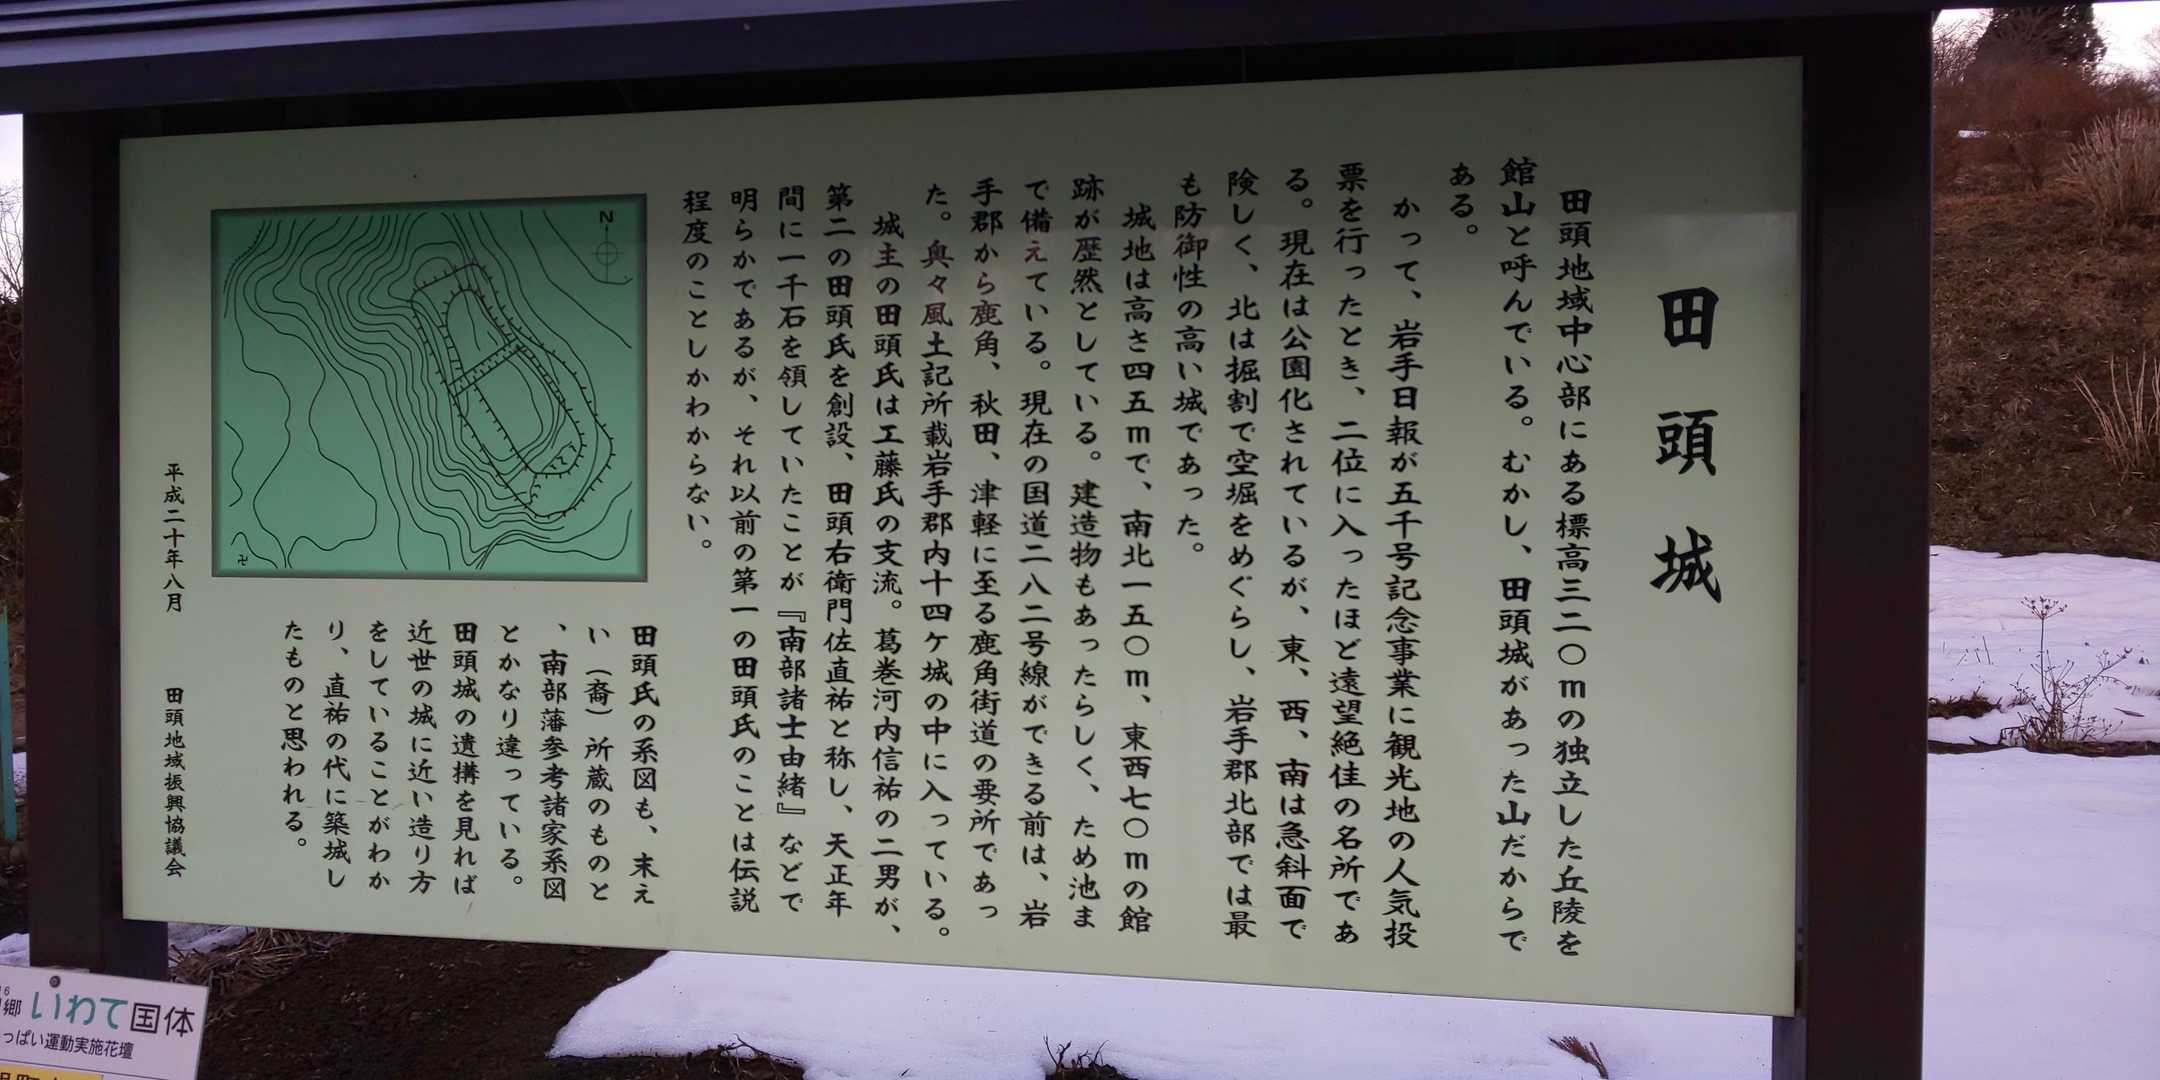 田頭城
田頭地域中心部にある標高三二〇mの独立した丘陵を
館山と呼んでいる。むかし、田頭城があった山だからで
ある。
かって、岩手日報が五千号記念事業に観光地の人気投
票を行ったとき、二位に入ったほど遠望絶佳の名所であ
る。現在は公園化されているが、東、西、南は急斜面で
険しく、北は掘割で空堀をめぐらし、岩手郡北部では最
も防御性の高い城であった。
城地は高さ四五mで、南北一五〇m、東西七〇mの館
跡が歴然としている。建造物もあったらしく、ため池ま
で備えている。現在の国道二八二号線ができる前は、岩
手郡から鹿角、秋田、津軽に至る鹿角街道の要所であっ
た。奥々風土記所載岩手郡内十四ケ城の中に入っている。
城主の田頭氏は工藤氏の支流。葛巻河内信祐の二男が、
第二の田頭氏を創設、田頭右衛門佐直祐と称し、天正年
間に一千石を領していたことが『南部諸士由緒』などで
明らかであるが、それ以前の第一の田頭氏のことは伝説
程度のことしかわからない。
田頭氏の系図も、末え
い（裔）所蔵のものと
、南部藩参考諸家系図
とかなり違っている。
田頭城の遺構を見れば
近世の城に近い造り方
をしていることがわか
り、直祐の代に築城し
たものと思われる。
平成二十年八月　田頭地域振興協議会
N
卍
郷 いわて国体
っぱい運動実施花壇